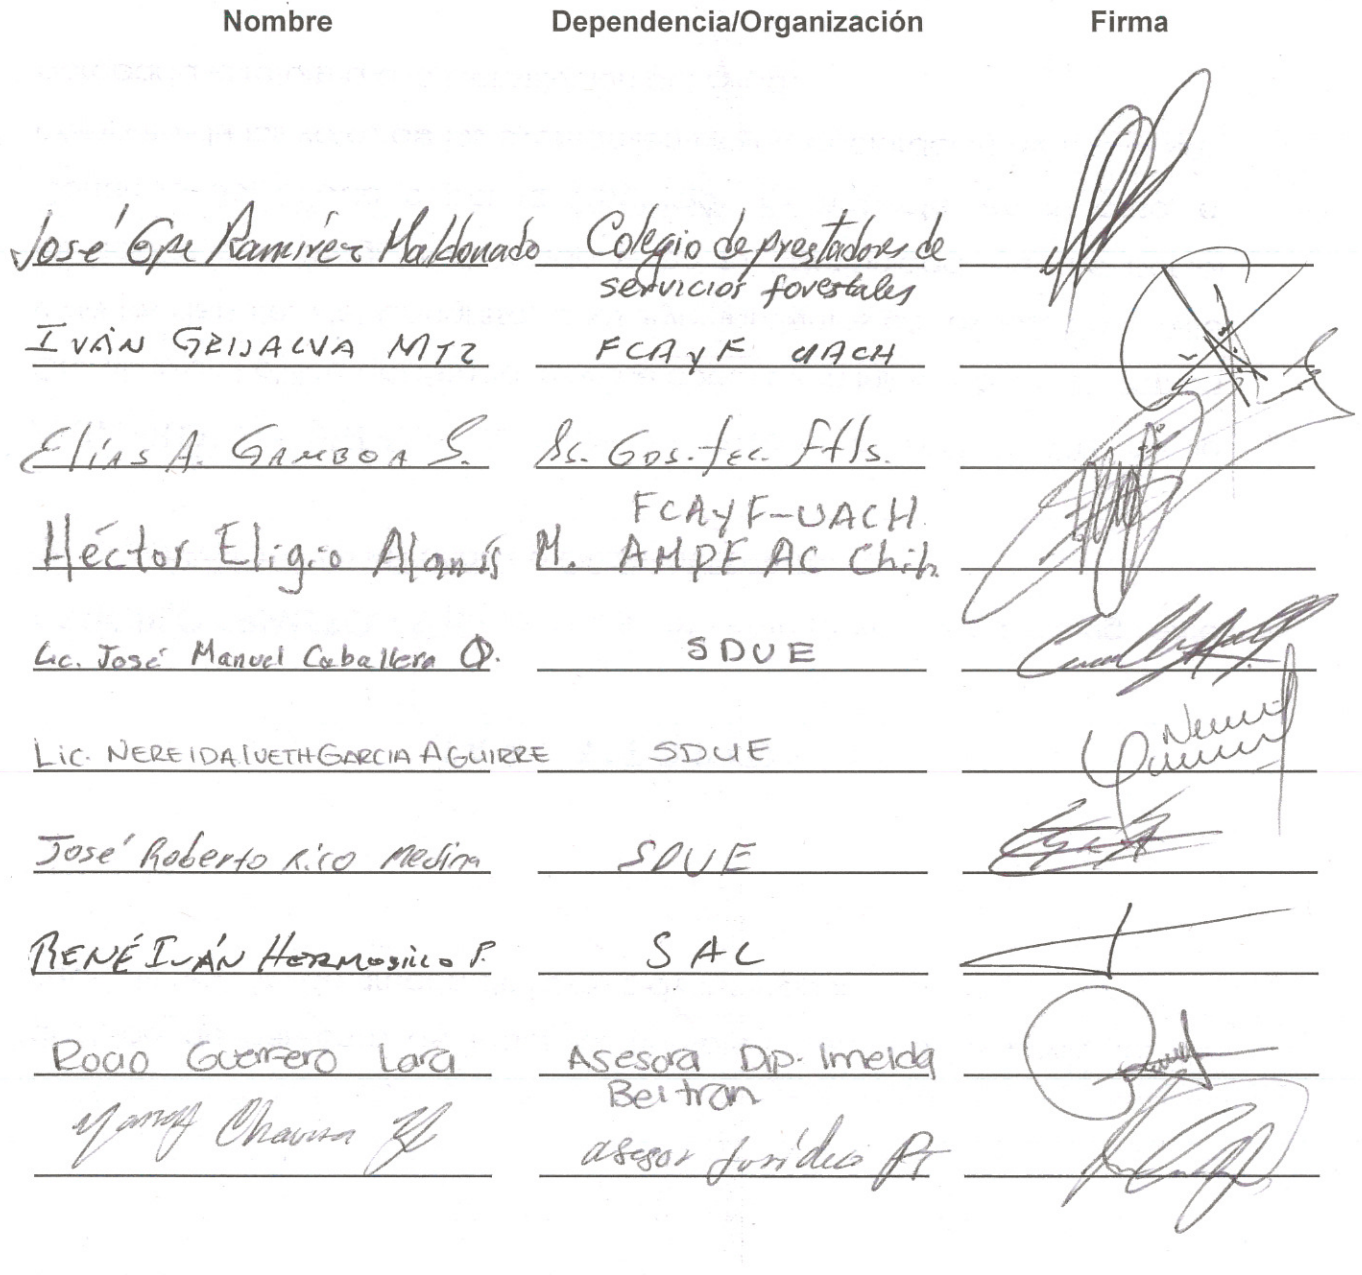 Nombre Dependencia/Organización Firma
José Gpe Ramírez Maldonado Colegio de prestadores de
servicios forestales
IVÁN GRIJALVA MTZ FCAyF UACH
Elías A. GAMBOA S. Sc. Gos. Tec. Ftls.
FCAyF-UACH
Héctor Eligio Alanís M. AMPF AC Chih.
Lic. José Manuel Caballero SDUE
Lic. NEREIDA IVETH GARCIA AGUIRRE SDUE
José Roberto Rico Medina SDUE
RENÉ IVÁN HERMOSILLO P. SAL
Rocio Guerrero Lara Asesora Dip. Imelda
Beltran
Chavira asesor Jurídico PT